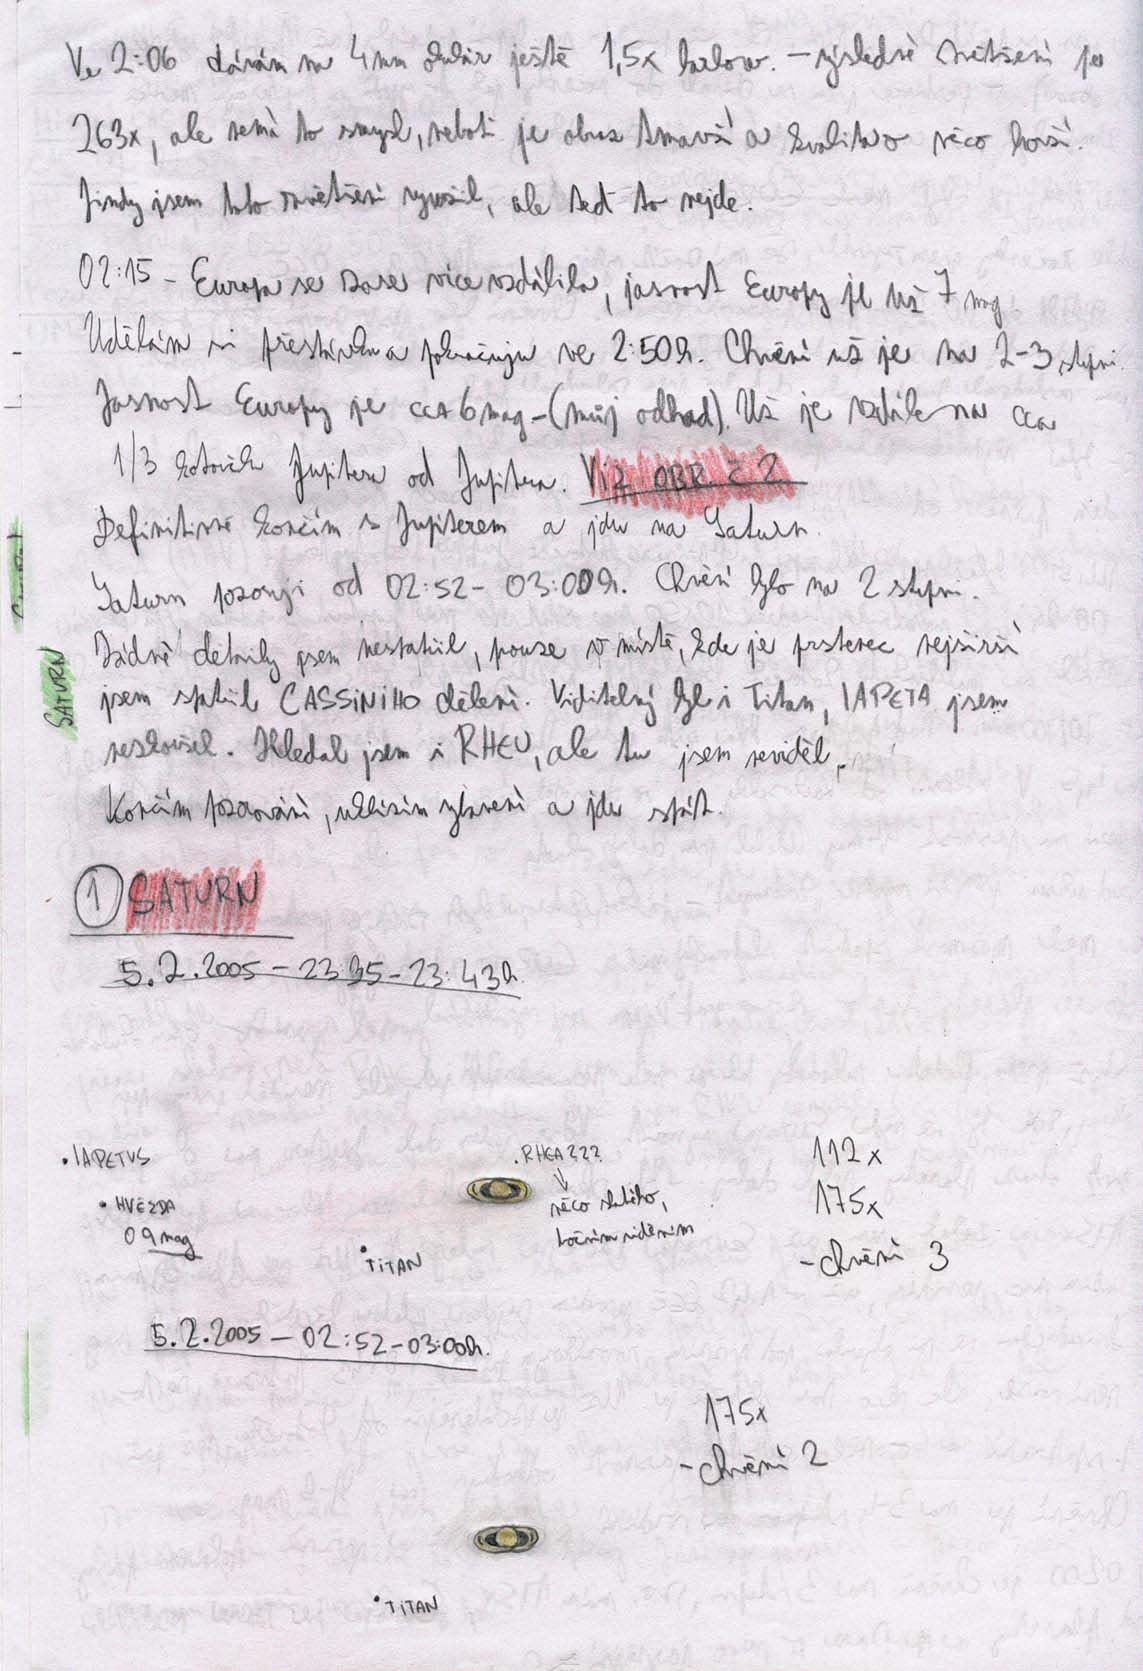 Ve 2:06 dávám na 4mm okulár ještě 1,5x barlow. – výsledné zvětšení je
263x, ale nemá to smysl, neboť je obraz tmavší a kvalitou něco horší.
Jindy jsem toto zvětšení využil, ale teď to nejde.
02:15 – Europa se zase více vzdálila, jasnost Europy je už 7 mag
Udělám si přestávku a pokračuju ve 2:50h. Chvění už je na 2-3 stupni.
Jasnost Europy je cca 6 mag – (můj odhad). Už je vzdálena cca
1/3 kotoučku Jupitera od Jupitera. Viz OBR. č 2
Definitivně končím s Jupiterem a jdu na Saturn.
SATURN
Saturn pozoruji od 02:52 – 03:00h. Chvění bylo na 2 stupni.
Žádné detaily jsem nespatřil, pouze v místě, kde je prstenec nejširší
jsem spatřil CASSINIHO dělení. Viditelný byl i Titan, IAPETA jsem
nezkoušel. Hledal jsem i RHEU, ale tu jsem neviděl.
Končím pozorování, uklízím vybavení a jdu spát.
1 SATURN
5.2.2005 – 23:35 – 23:43h.
IAPETUS
HVĚZDA
09mag
TITAN
RHEA???
něco slabého,
bočním viděním
112x
175x
- chvění 3
5.2.2005 – 02:52 – 03:00h.
175x
- chvění 2
TITAN